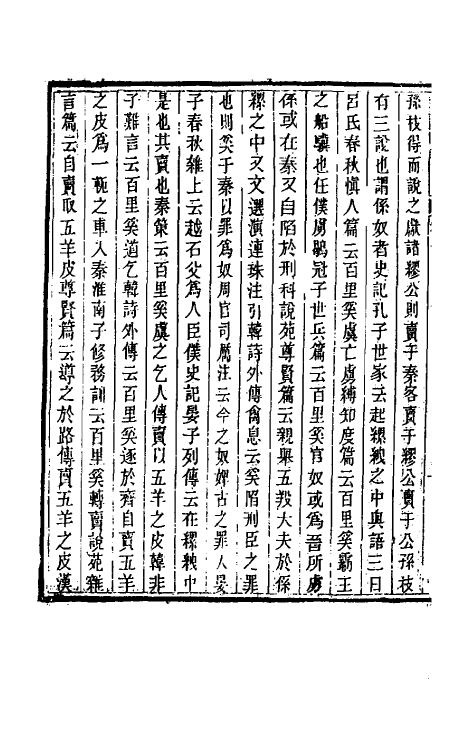 孫枝得而說之獻諸繆公則賣于秦客賣于繆公賣于公孫枝
有三說也謂係奴者史記孔子世家云起纍紲之中與語三日
呂氏春秋慎人篇云百里奚虞亡虜縛知度篇云百里奚霸王
之船驥也任僕虜鶡冠子世兵篇云百里奚官奴或爲晉所虜
係或在秦又自陷於刑科說苑尊賢篇云親舉五羖大夫於係
縲之中又文選演連珠注引韓詩外傳禽息云奚陷刑臣之罪
也則奚于秦以罪爲奴周官司厲注云今之奴婢古之罪人晏
子春秋雜上云越石父爲人臣僕史記晏子列傳云在縲紲中
是也其賣也秦策云百里奚虞之乞人傳賣以五羊之皮韓非
子難言云百里奚道乞韓詩外傳云百里奚逐於齊自賣五羊
之皮爲一軛之車入秦淮南子修務訓云百里奚轉賣說苑雜
言篇云自賣取五羊皮尊賢篇云導之於路傳賣五羊之皮漢